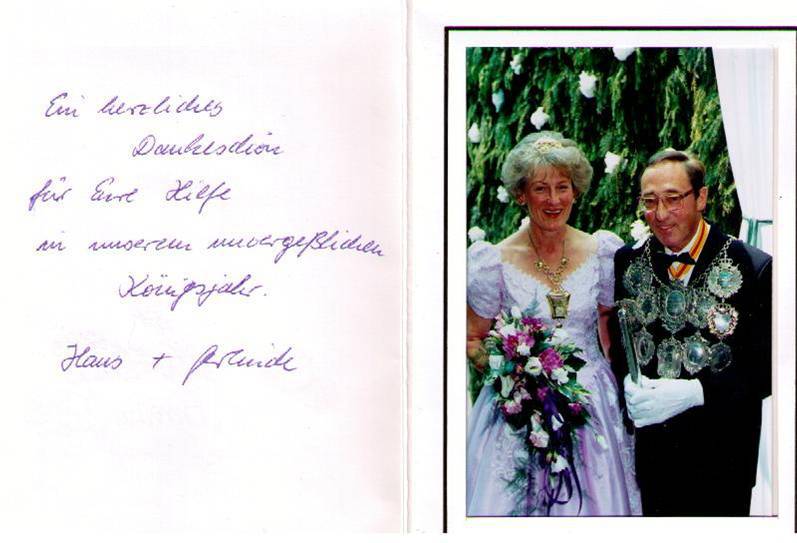 Ein herzliches
Dankeschön
für Eure Hilfe
in unserem unvergeßlichen
Königsjahr.
Hans + Gerlinde